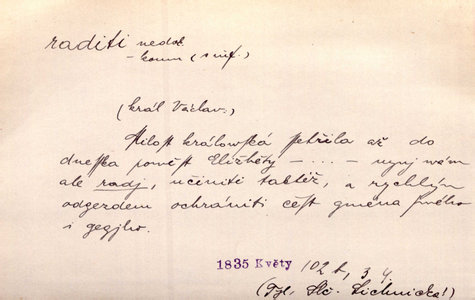 raditi nedok.
– komu (s inf.)
(král Václav:)
Milost králowská šetřila až do
dneška pověst Eližběty – . . . – nynj wám
ale radj, učiniti taktéž, a rychlým
odgezdem ochrániti čest gména swého
i gegjho.
1835 Květy 102 b, 3 4.
(Tyl, Sl. Lichnická!)